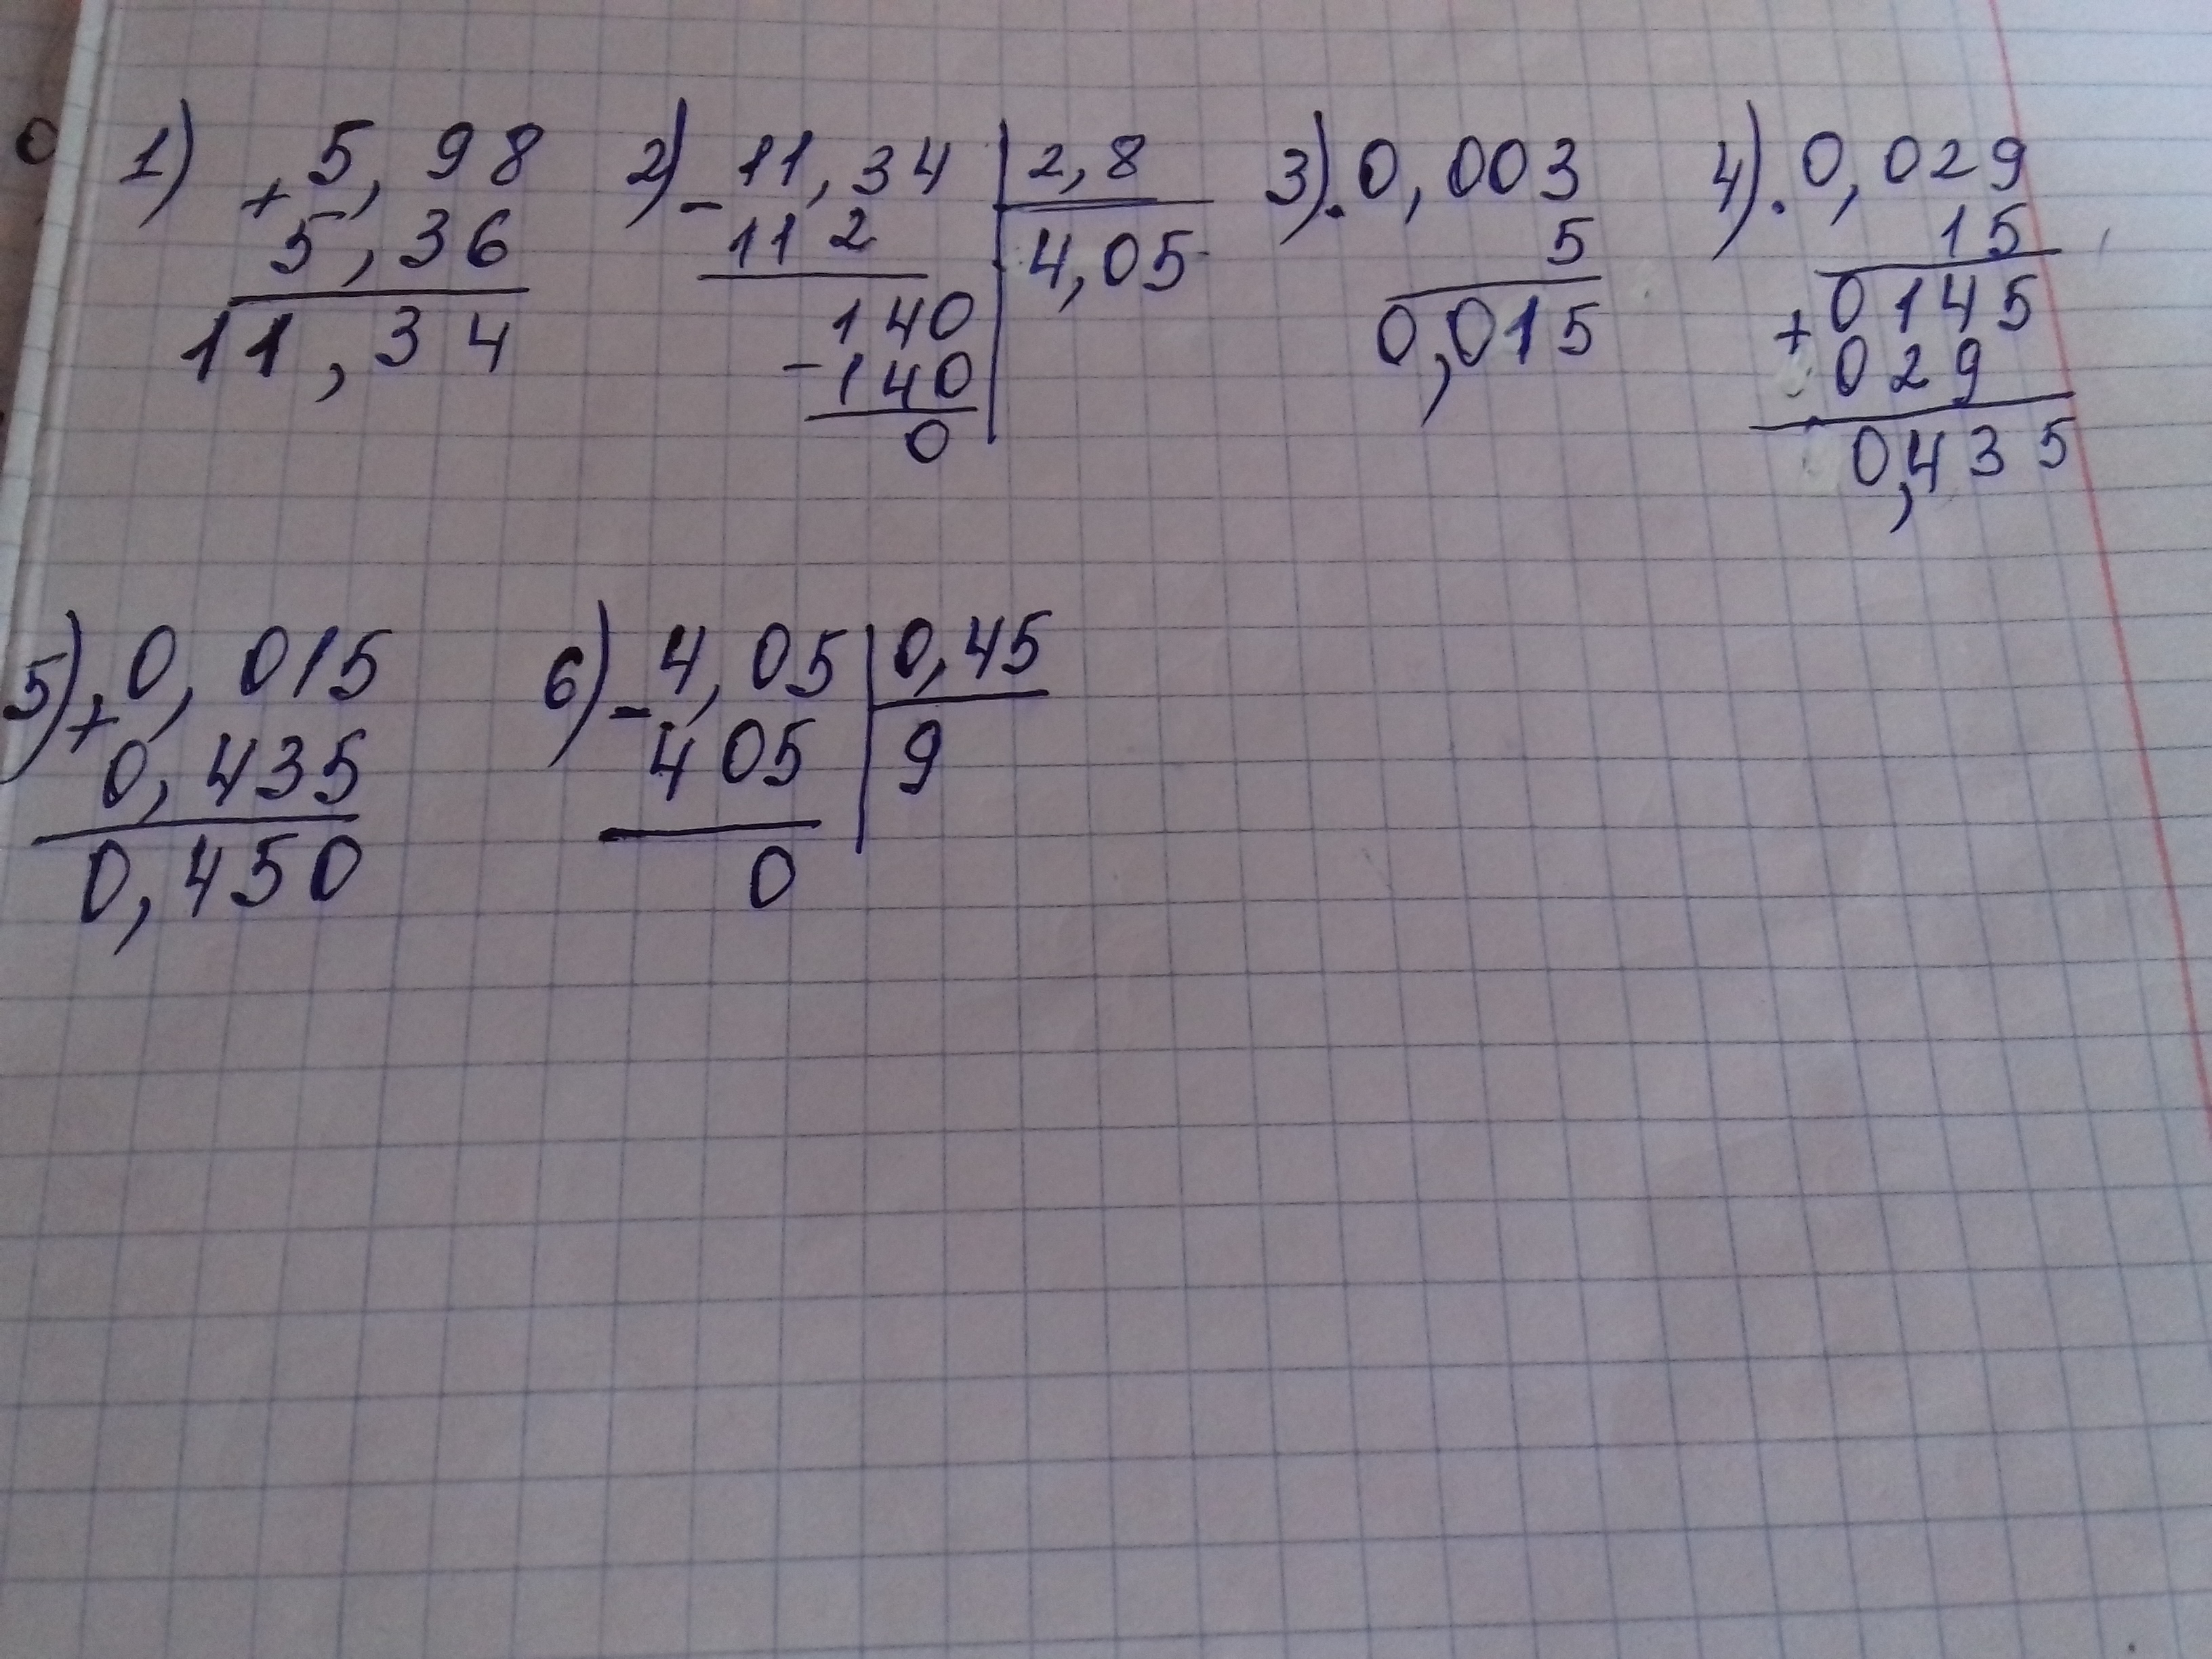 1) + 5,98
5,36
11,34
2) - 11,34 | 2,8
112 | 4,05
140
- 140
0
3) . 0,003
5
0,015
4) . 0,029
15
0145
+ 029
0,435
5) + 0,015
0,435
0,450
6) - 4,05 | 0,45
405 | 9
0